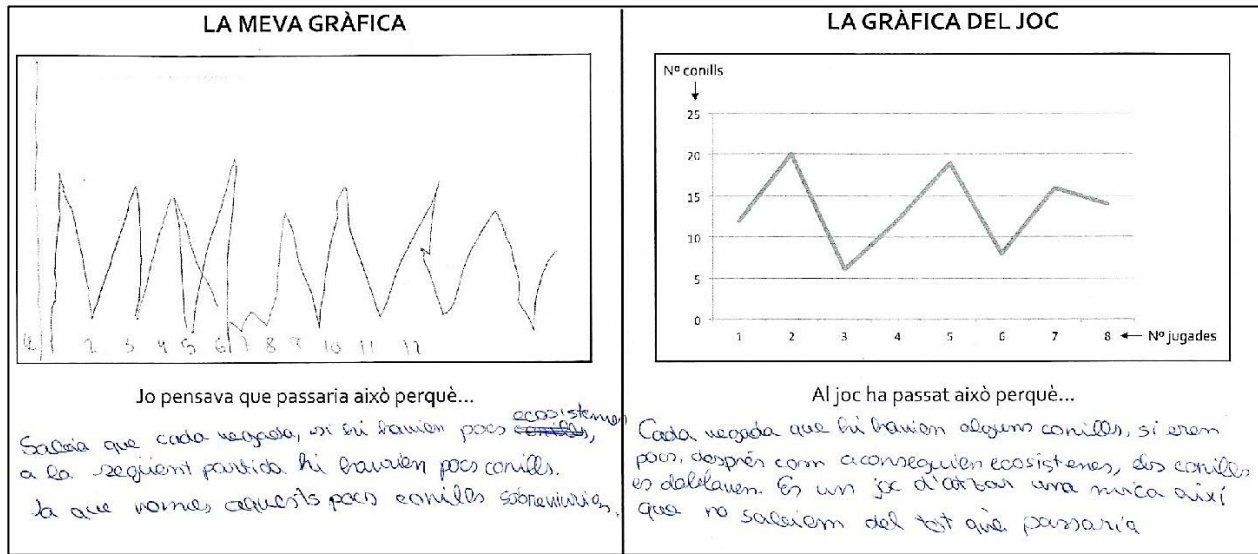 LA MEVA GRÀFICA
2 3 4 5 6 7 8 9 10 11 12
Jo pensava que passaria això perquè...
Sabia que cada vegada, si hi havien pocs ecosistemes,
a la següent partida hi haurien pocs conills.
Ja que només aquests pocs conills sobreviurien.
LA GRÀFICA DEL JOC
Nº conills
25
20
15
10
5
0
1 2 3 4 5 6 7 8 Nº jugades
Al joc ha passat això perquè...
Cada vegada que hi havien alguns conills, si eren
pocs, després com aconseguien ecosistemes, dos conills
es doblaven. Es un joc d'atzar una mica així
que no sabiem del tot què passaria